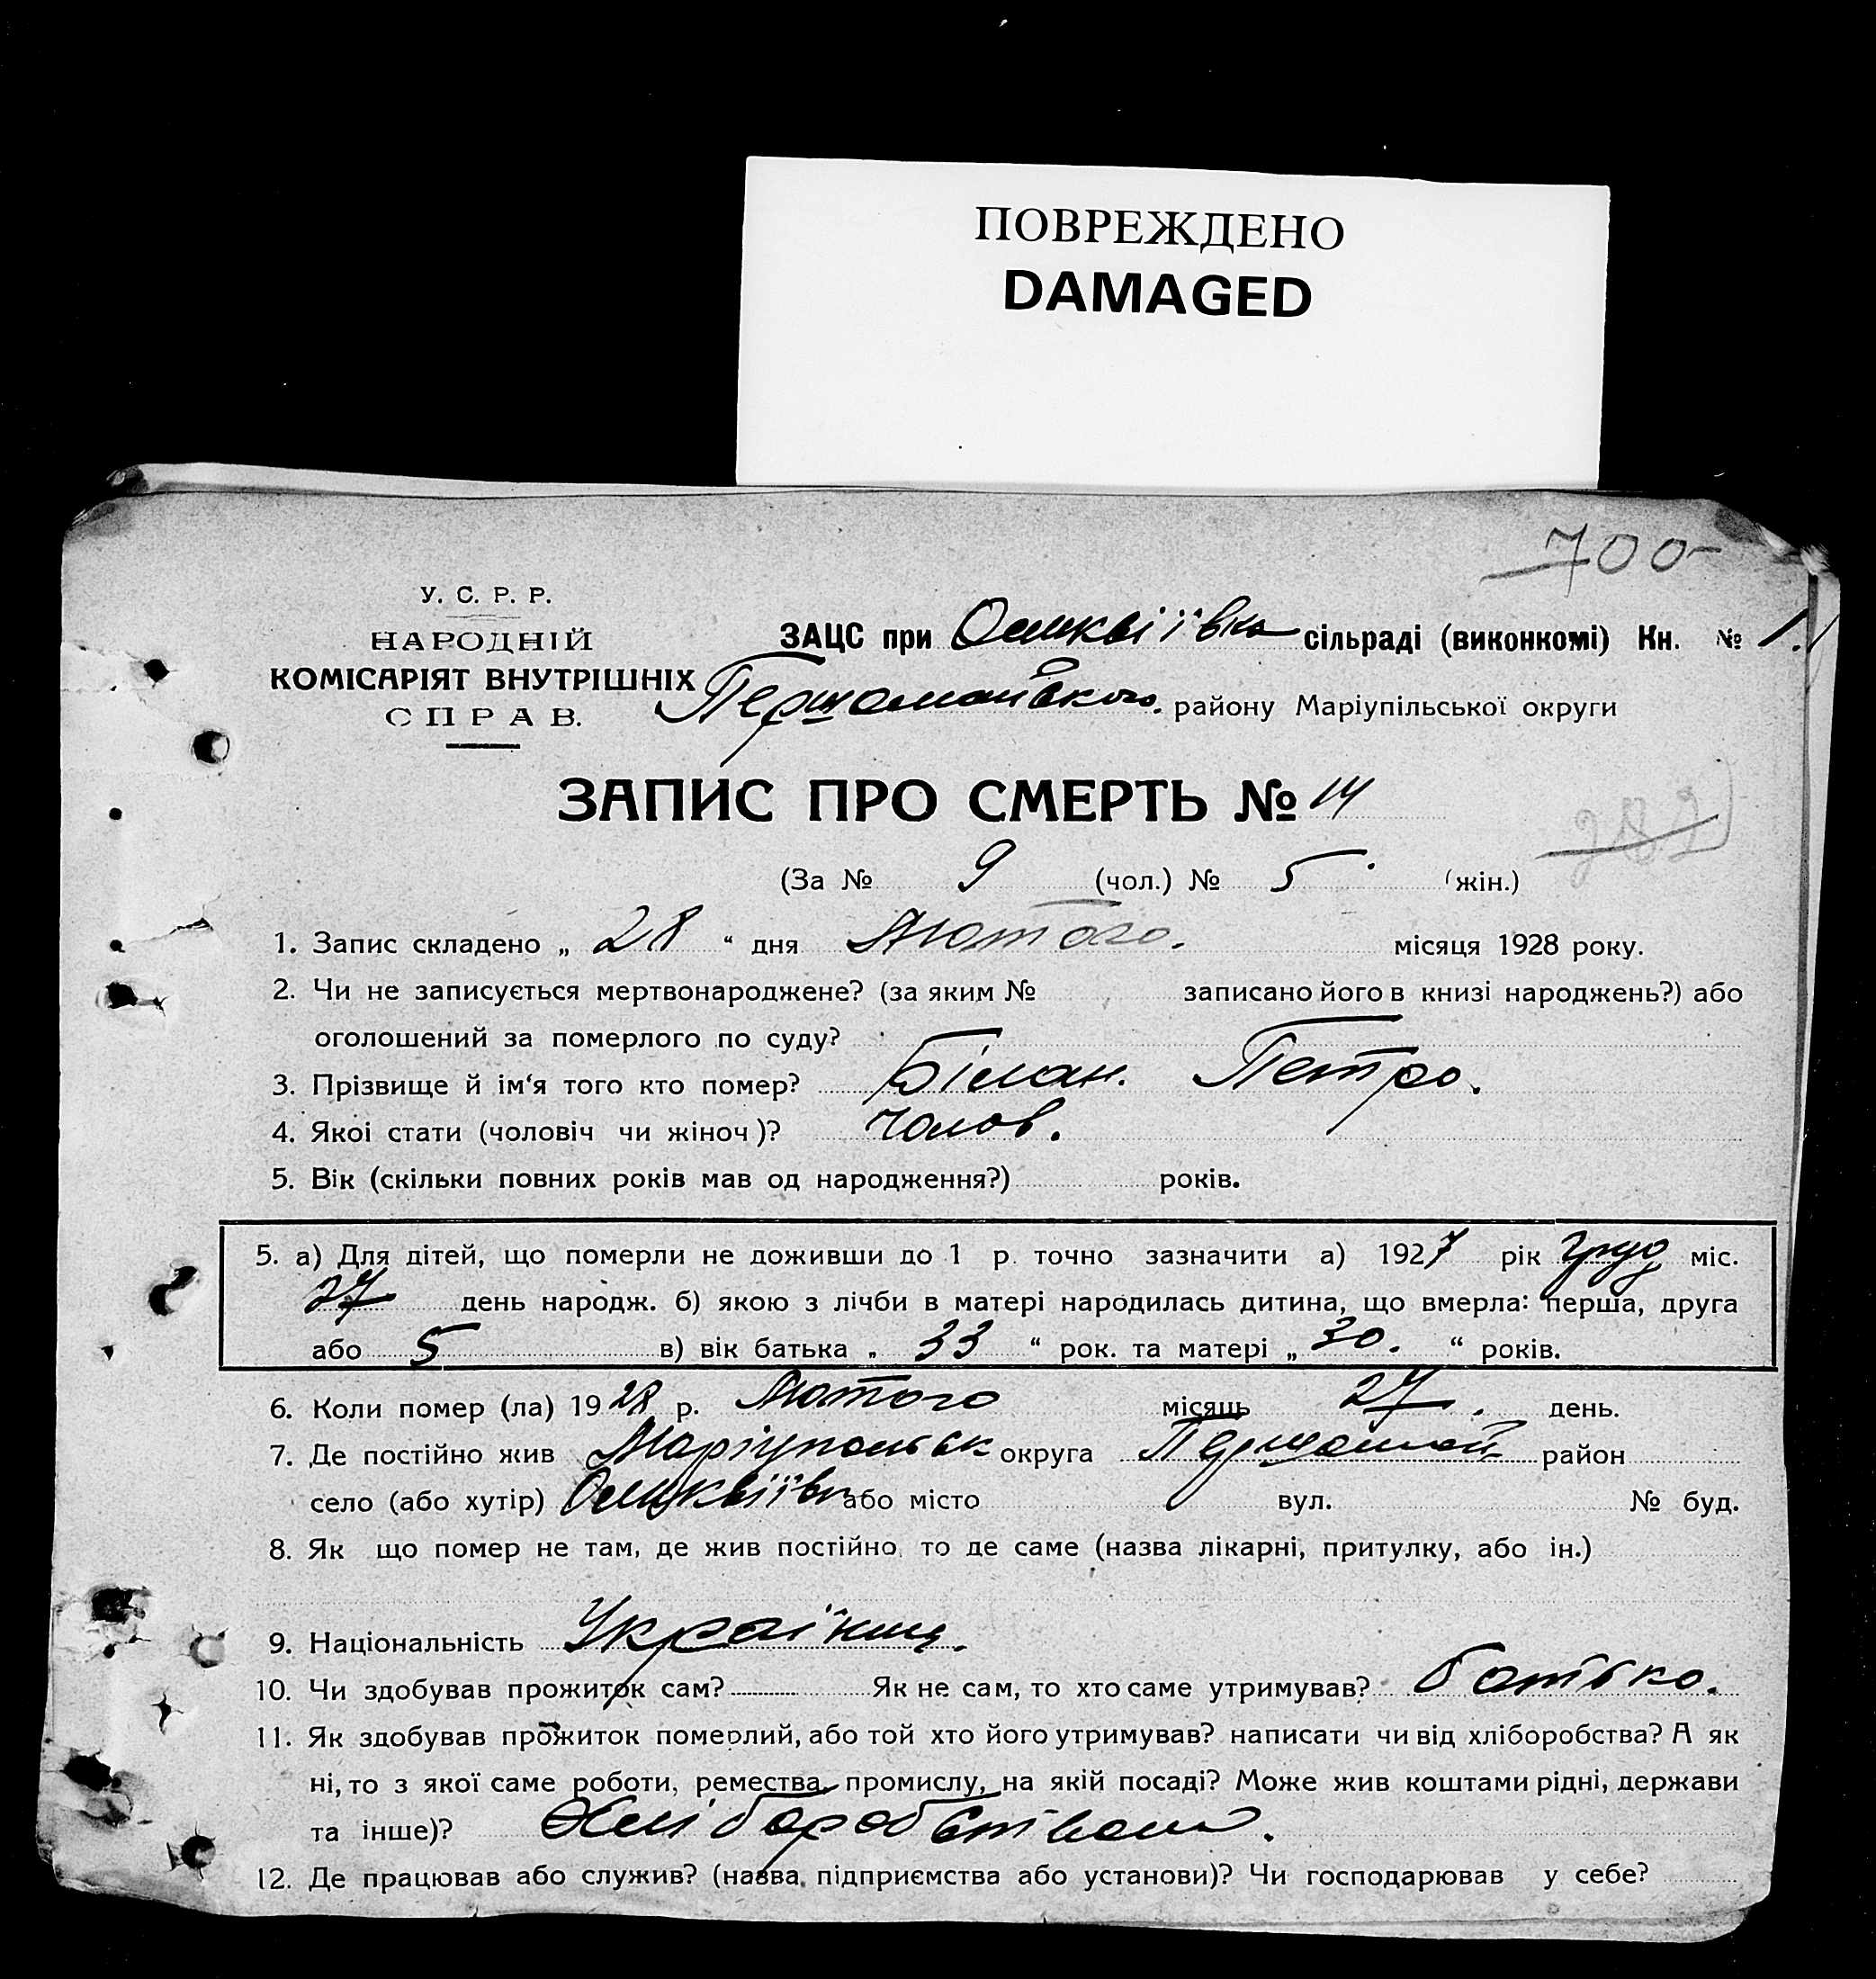 ПОВРЕЖДЕНО
DAMAGED
700-
У. С. Р. Р.
НАРОДНІЙ
КОМІСАРІЯТ ВНУТРІШНІХ
СПРАВ.
ЗАЦС при сільраді (виконкомі) Кн. № 1.
Першомайського. району Маріупільської округи
ЗАПИС ПРО СМЕРТЬ № 14
(За № 9 (чол.) № 5 (жін.)
1. Запис складено „ 28 “ дня Лютого. місяця 1928 року.
2. Чи не записується мертвонароджене? (за яким № записано його в книзі народжень?) або
оголошений за померлого по суду?
3. Прізвище й ім'я того кто помер? Білан. Петро.
4. Якоі стати (чоловіч чи жіноч)? чолов.
5. Вік (скільки повних років мав од народження?) років.
5. а) Для дітей, що померли не доживши до 1 р. точно зазначити а) 1927 рік груд міс.
27 день народж. б) якою з лічби в матері народилась дитина, що вмерла: перша, друга
або 5 в) вік батька „ 33 “ рок. та матері „ 30. “ років.
6. Коли помер (ла) 1928 р. Лютого місяць 27. день.
7. Де постійно жив Маріупольськ округа Першомай район
село (або хутір) або місто вул. № буд.
8. Як що помер не там, де жив постійно, то де саме (назва лікарні, притулку, або ін.)
9. Національність Українець.
10. Чи здобував прожиток сам? Як не сам, то хто саме утримував? батько.
11. Як здобував прожиток померлий, або той хто його утримував? написати чи від хліборобства? А як
ні, то з якої саме роботи, ремества, промислу, на якій посаді? Може жив коштами рідні, держави
та інше)? Хліборобством.
12. Де працював або служив? (назва підприємства або установи)? Чи господарював у себе?